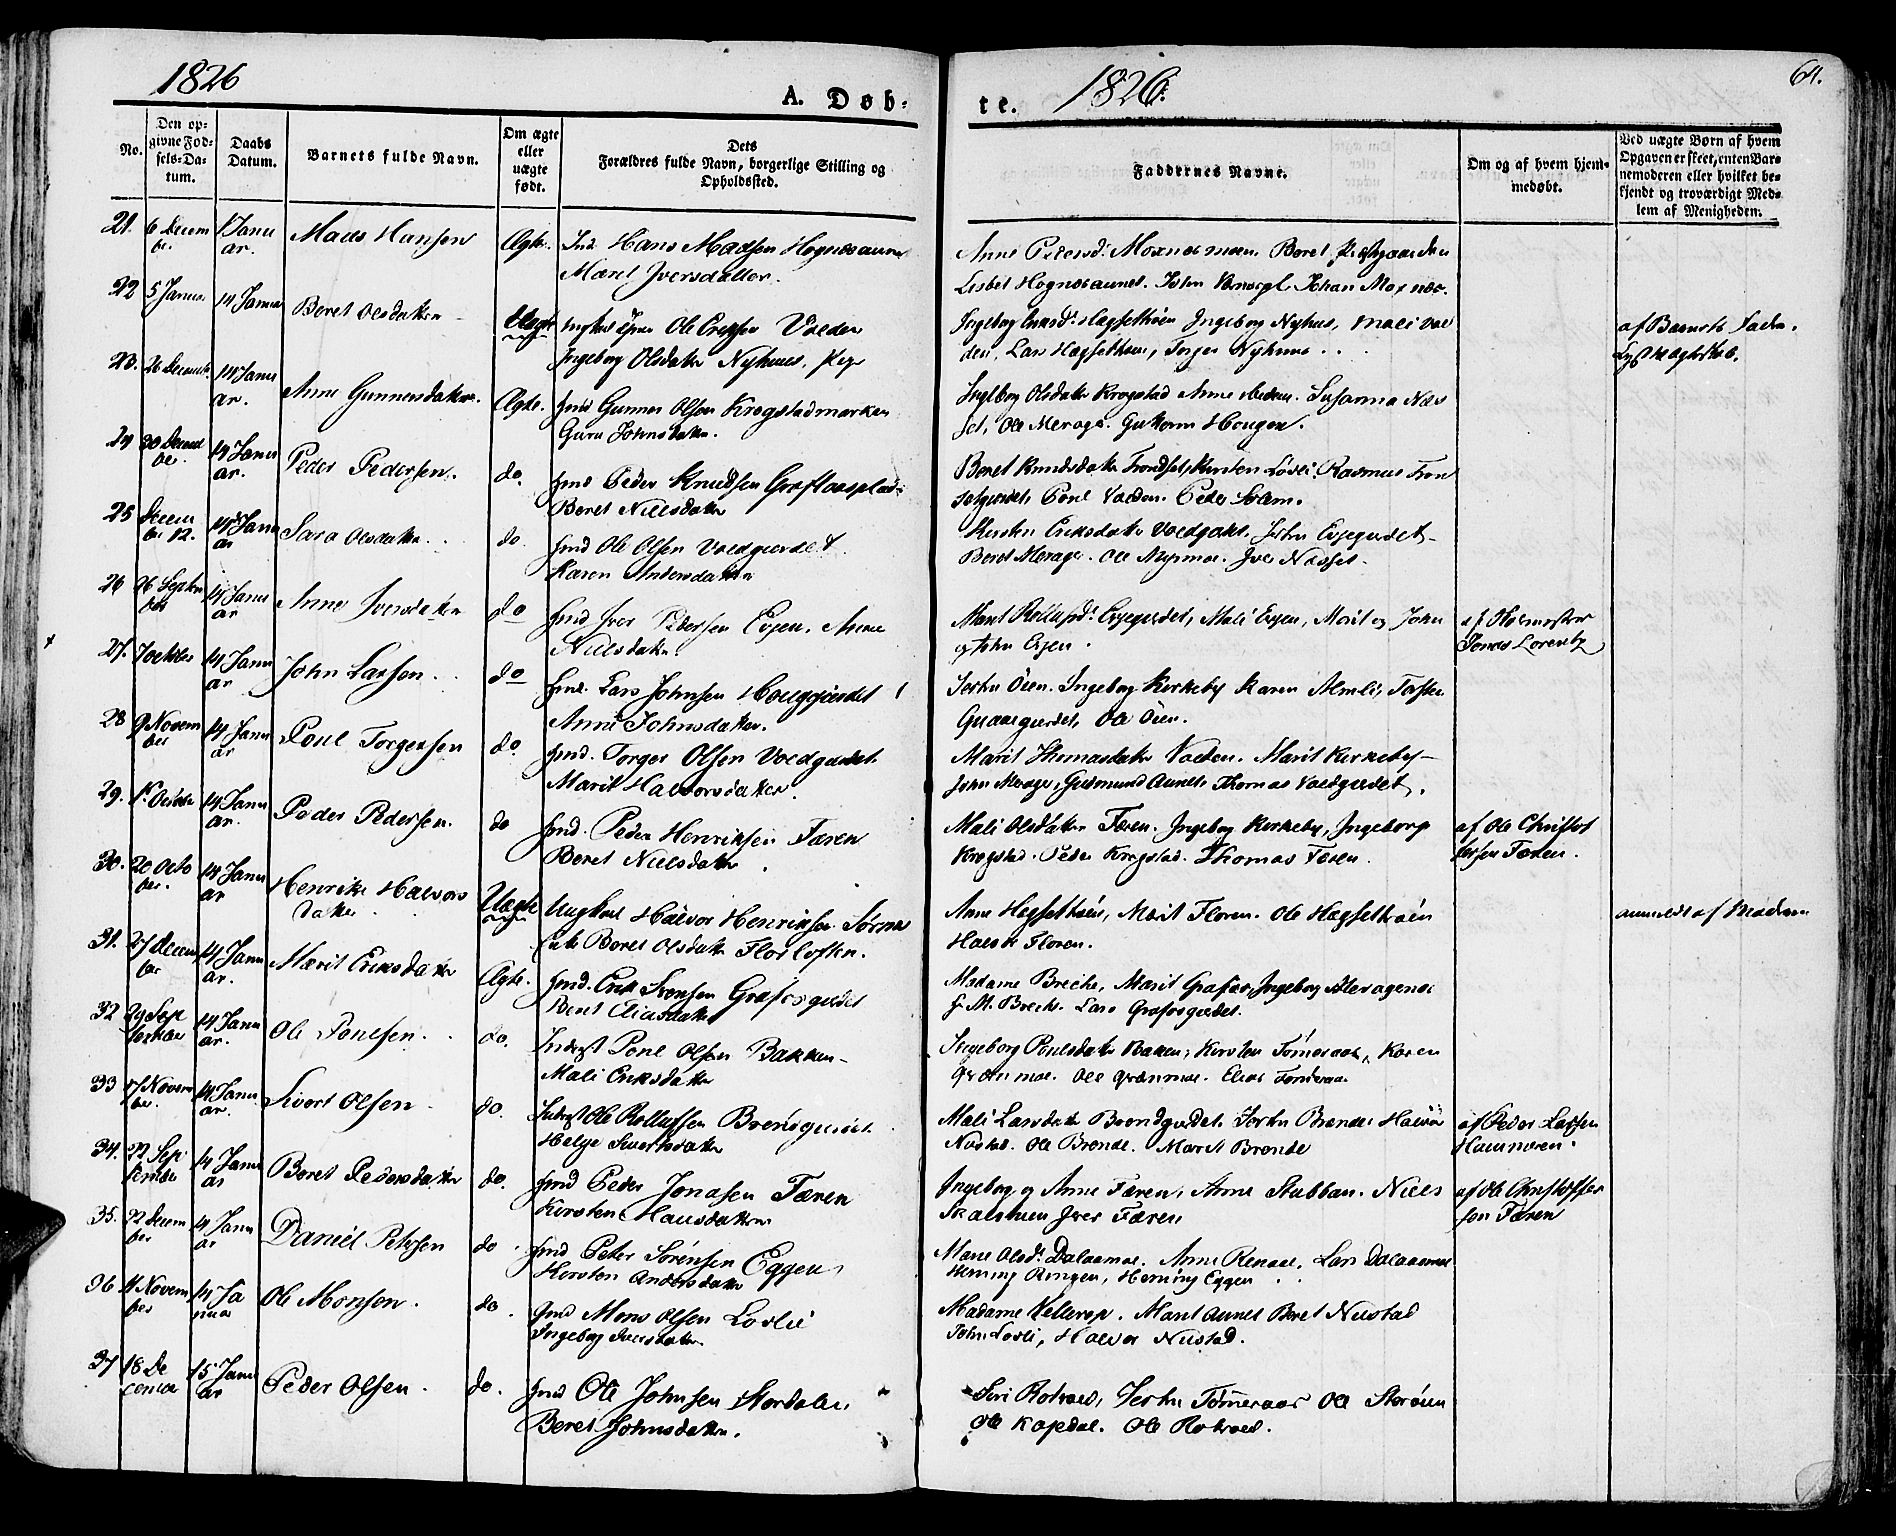 1826
A. Døb-
te.
1826.
64.
No.
Den op-
givne Fød-
sels-Da-
tum.
Daabs
Datum.
Barnets fulde Navn.
Om ægte
eller
uægte
født.
Dets
Forældres fulde Navn, borgerlige Stilling og
Opholdssted.
Faddernes Navne.
Om og af hvem hjem-
medøbt.
Ved uægte Børn af hvem
Opgaven er skeet, enten Bar-
nemoderen eller hvilket be-
kjendt og troværdigt Med-
lem af Menigheden.
21. 6 Decem
ber
1 Janu
ar.
Mads Hansen
Ægte.
Ind. Hans Madsen Hognesaunet
Marit Iversdatter.
Anne Pedersd. Moxnesmoen. Beret Prestgaarden
Lisbet Hognesaunet. John Johan Moxnes.
22 5 Januar 14 Januar
Beret Olsdatter
Uægte
Ungkarl Ole Ericksen Volden
Ingeborg Olsdatter Nyhuus, Pige
Ingeborg Hægsethøen Ingeborg Nyhus, Mali Vol
den, Lars Hægsethøen, Torger Nyhuus.
af Barnets Fader.
23. 26 Decemb. 14 Janu
ar.
Anne Gunnersdatter.
Ægte.
Gunner Olsen Krogstadmarken
Guru Johnsdatter.
Ingeborg Olsdatter Krogstad Anne Susanna Næs
set, Ole Merage. Guttorm Hougen.
24 30 Decem
ber
14 Janu
ar.
Peder Pedersen.
do.
Peder Knudsen Grafaasplads
Beret Nielsdatter
Beret Knudsdatter Trondset, Kirsten Løvli. Rasmus Tron
setgierdet. Poul Volden. Peder Svem.
25 Decem
ber 12.
14 Janu
ar
Sara Olsdatter.
do
Ole Olsen Voldgierdet.
Karen Andersdatter
Kirsten Eriksdatter Voldgierdet. John Evjegierdet
Beret Merage. Ole Myrmoe. Iver Næsset.
26 26 Septem
ber
14 Janu
ar
Anne Iversdatter
do
Iver Pedersen Evjen. Anne
Nielsdatter.
Marit Rollufsd. Evjegierdet, Mali Evjen, Marit og John
og John Evjen.
af
Jonas Lorentz
27. October 14 Janu
ar
John Larsen.
do
Lars Johnsen Houggierdet
Anne Johnsdatter.
John Øien. Ingeborg Kirkeby Karen Almli, Torsten
Graaegierdet, Ole Øien.
28 9 Novem
ber
14 Janu
ar
Poul Torgersen
do.
Torger Olsen Voldgierdet
Marit Halvorsdatter
Marit Thomasdatter Volden. Marit Kirkeby
John Merage, Gudmund Aunet. Thomas Voldgierdet.
29. October 14 Janu
ar.
Peder Pedersen.
do
Peder Henriksen Færen
Beret Nielsdatter
Mali Olsdatter Færen. Ingeborg Kirkeby, Ingeborg
Krogstad. Peder Krogstad. Thomas Færen.
af Ole Christof
fersen Færen.
30. 20 Octo
ber.
14 Janu
ar
Henrike Halvors
datter
Uægte
Ungkarl Halvor Henriksen
Beret Olsdatter
Anne Hægsethøen, Marit Floren. Ole Hægsethøen
Halvor Floren.
anmeldt af Moderen
31. 27 Decem
ber
14 Janu
ar.
Marit Eriksdatter
Ægte.
Erik Svensen Grafosgierdet
Beret Eliasdatter
Madame Breche, Marit Grafos, Ingeborg Merages
Hr. M. Breche. Lars Grafosgierdet.
32 29 Sep
tember
14 Janu
ar.
Ole Poulsen.
do.
Inderst Poul Olsen Bakken
Mali Eriksdatter
Ingeborg Poulsdatter Bakken, Kirsten Tømeraas, Karen
Grønmoe. Ole Grønmoe. Elias
33 17 Novem
ber.
14 Janu
ar.
Sivert Olsen
do.
Inderst Ole Rolluffsen
Helge Sivertsdatter
Mali Larsdatter Brøndgierdet. John Brønde. Halvor
Nustad. Ole Brønde. Marit Brønde
af Peder Larsen
34. 22 Sep
tember
14 Janu
ar
Beret Pedersdatter
do.
Peder Jonasen Færen
Kirsten Hansdatter
Ingeborg og Anne Færen, Anne Stubban. Niels
Iver Færen
af Ole Christoffer
sen Færen
35. 22 Decem
ber
14 Janu
ar
Daniel Petersen
do.
Peter Sørensen Eggen,
Kirsten Andersdatter
Marie Olsd. Dalaamoe. Anne Renaae, Lars Dalaamoe
Henning Ringen, Henning Eggen
36 11 Novem
ber
14 Ja
nuar
Ole Monsen.
do.
Mons Olsen Løvlie
Ingeborg Iversdatter
Madame Vellerop. Marit Aunet Beret Nustad
John Løvli, Halvor Nustad.
37 18 De
cember
15 Janu
ar
Peder Olsen.
do.
Ole Johnsen Stordalen
Beret Johnsdatter.
Siri Rotvold, John Tømeraas Ole Storøien
Ole Kopedal. Ole Rotvold.